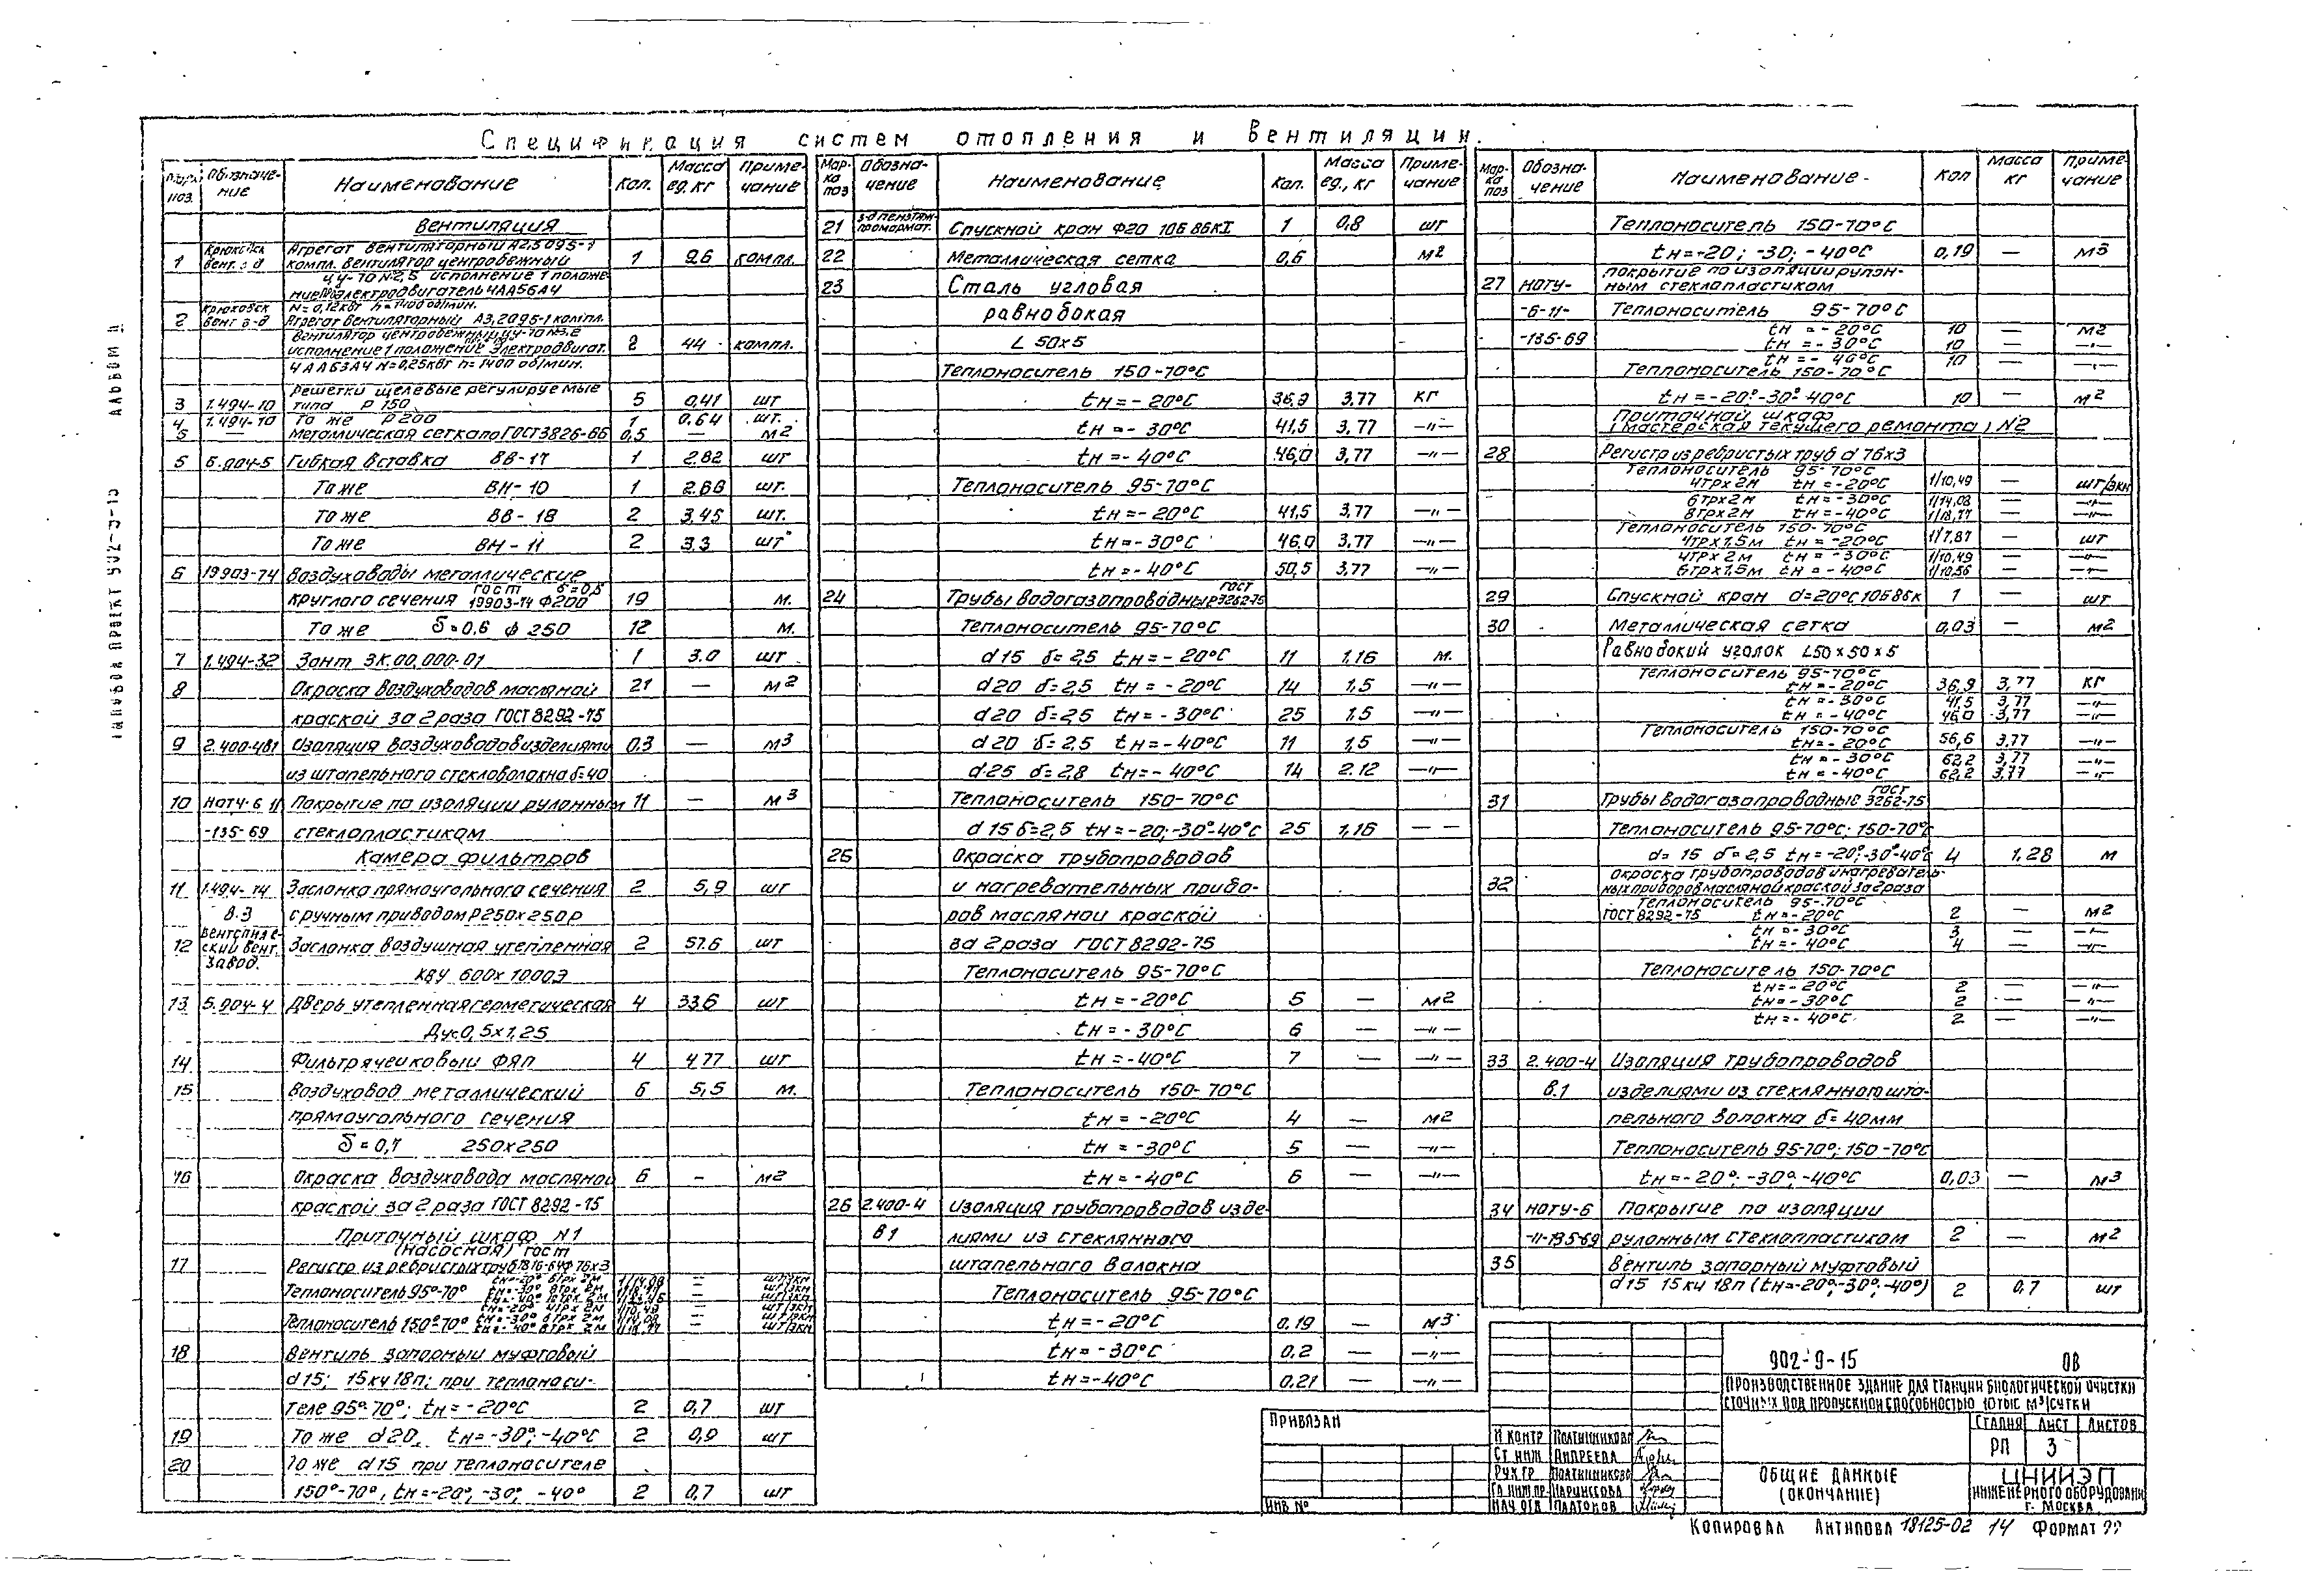 Спецификация систем отопления и вентиляции.
Обозначе-ние Наименование Кол. Масса ед. кг Приме-чание
Вентиляция
1 Крюковск. вент. з-д Агрегат вентиляторный А2,5095-1
компл. Вентилятор центробежный 1 26 компл.
ЦУ-70 №2,5 исполнение 1 положе
электродвигатель 4АА56А4
N=0,12кВт n=1400 об/мин.
2 Крюковск вент з-д Агрегат вентиляторный А3,2095-1 компл.
Вентилятор центробежный ЦУ-70 №3,2
исполнение 1 положение Электродвигат. 2 44 компл.
4АА63А4 N=0,25кВт n=1400 об/мин.
Решетки щелевые регулируемые
3 1.494-10 типа Р 150 5 0,41 шт
4 1.494-10 То же Р200 1 0,64 шт.
5 — Металлическая сетка по ГОСТ 3826-66 0,5 — м2
5 5.904-5 Гибкая вставка ВВ-17 1 2.82 шт
То же ВН-10 1 шт.
То же ВВ-18 2 3,45 шт.
То же ВН-11 2 3.3 шт
6 19903-74 Воздуховоды металлические
круглого сечения ГОСТ 19903-74 δ=0,5 ф200 19 м.
То же δ=0,6 ф 250 12 м.
7 1.494-32 Зонт ЗК.00.000-01 1 3.0 шт
8 Окраска воздуховодов масляной 21 — м2
краской за 2 раза ГОСТ 8292-75
9 Изоляция воздуховодов изделиями 0.3 — м3
из штапельного стекловолокна δ=40
10 НОТУ-6 11 Покрытие по изоляции рулонным 11 — м3
-135-69 стеклопластиком
Камера фильтров
11 1.494-14 Заслонка прямоугольного сечения 2 5,9 шт
в.3 с ручным приводом Р250х250Р
12 вент. завод. Заслонка воздушная утепленная 2 57.6 шт
КВУ 600х1000Э
13 5.904-4 Дверь утепленная герметическая 4 33.6 шт
Ду.0,5х1,25
14 Фильтр ячейковый ФЯП 4 4.77 шт
15 Воздуховод металлический 6 5,5 м.
прямоугольного сечения
δ=0,7 250х250
16 Окраска воздуховода масляной 6 - м2
краской за 2 раза ГОСТ 8292-75
Приточный шкаф №1
(насосная) ГОСТ
17 Регистр из ребристых труб
Теплоноситель 95°-70°
Теплоноситель 150°-70°
18 Вентиль запорный муфтовый
d15; 15кч18п; при теплоноси-
теле 95°-70°; tн=-20°С 2 0,7 шт
19 То же d20, tн=-30°; -40°С 2 0,9 шт
20 То же d15 при теплоносителе
150°-70°, tн=-20°, -30°, -40° 2 0,7 шт
Мар-ка поз Обозна-чение Наименование Кол. Масса ед., кг Приме-чание
21 Спускной кран Ф20 10Б8бкI 1 0,8 шт
22 Металлическая сетка 0,6 м2
23 Сталь угловая
равнобокая
L 50х5
Теплоноситель 150-70°С
tн=-20°С 36,9 3.77 кг
tн=-30°С 41,5 3,77 —"—
tн=-40°С 46,0 3,77 —"—
Теплоноситель 95-70°С
tн=-20°С 41,5 3,77 —"—
tн=-30°С 46,0 3,77 —"—
tн=-40°С 50,5 3,77 —"—
24 Трубы водогазопроводные ГОСТ 3262-75
Теплоноситель 95-70°С
d15 δ=2,5 tн=-20°С 11 1,16 м.
d20 δ=2,5 tн=-20°С 14 1,5 —"—
d20 δ=2,5 tн=-30°С 25 1,5 —"—
d20 δ=2,5 tн=-40°С 11 1,5 —"—
d25 δ=2,8 tн=-40°С 14 2.12 —"—
Теплоноситель 150-70°С
d15 δ=2,5 tн=-20;-30°-40°С 25 1,16 — —
25 Окраска трубопроводов
и нагревательных прибо-
ров масляной краской
за 2 раза ГОСТ 8292-75
Теплоноситель 95-70°С
tн=-20°С 5 — м2
tн=-30°С 6 — —"—
tн=-40°С 7 — —"—
Теплоноситель 150-70°С
tн=-20°С 4 — м2
tн=-30°С 5 — —"—
tн=-40°С 6 — —"—
26 2.400-4 Изоляция трубопроводов изде-
в1 лиями из стеклянного
штапельного волокна
Теплоноситель 95-70°С
tн=-20°С 0.19 — м3
tн=-30°С 0,2 — —"—
tн=-40°С 0.21 — —"—
Мар-ка поз Обозна-чение Наименование- Кол Масса кг Приме-чание
Теплоноситель 150-70°С
tн=-20; -30; -40°С 0,19 — м3
27 НОТУ- покрытие по изоляции рулон-
ным стеклопластиком
-6-11- Теплоноситель 95-70°С
-135-69 tн=-20°С 10 — м2
tн=-30°С 10 — —"—
tн=-40°С 10 — —"—
Теплоноситель 150-70°С
tн=-20°-30°-40°С 10 — м2
Приточный шкаф
(мастерская текущего ремонта) №2
28 Регистр из ребристых труб d 76х3
Теплоноситель 95-70°С
4трх2м tн=-20°С 1/10,49 — шт/экм
6трх2м tн=-30°С 1/14,08 — —"—
8трх2м tн=-40°С — —"—
Теплоноситель 150-70°С
4трх1,5м tн=-20°С 1/7,87 — шт
4трх2м tн=-30°С 1/10,49 — —"—
6трх1,5м tн=-40°С 1/10,56 — —"—
29 Спускной кран d=20°С 10Б8бк 1 — шт
30 Металлическая сетка 0,03 — м2
Равнобокий уголок L50х50х5
Теплоноситель 95-70°С
tн=-20°С 36,9 3,77 кг
tн=-30°С 41,5 3,77 —"—
tн=-40°С 46,0 3,77 —"—
Теплоноситель 150-70°С
tн=-20°С 56,6 3,77 —"—
tн=-30°С 62,2 3,77 —"—
tн=-40°С 62,2 3,77 —"—
31 Трубы водогазопроводные ГОСТ 3262-75
Теплоноситель 95-70°С; 150-70°С
d=15 δ=2,5 tн=-20°,-30°-40°С 4 1,28 м
32 окраска трубопроводов и нагреватель-
ных приборов масляной краской за 2 раза
Теплоноситель 95-70°С
ГОСТ 8292-75 tн=-20°С 2 — м2
tн=-30°С 3 — —"—
tн=-40°С 4 — —"—
Теплоноситель 150-70°С
tн=-20°С 2 — —"—
tн=-30°С 2 — —"—
tн=-40°С 2 — —"—
33 2.400-4 Изоляция трубопроводов
в.1 изделиями из стеклянного шта-
пельного волокна δ=40мм
Теплоноситель 95-70°; 150-70°С
tн=-20°; -30°; -40°С 0,03 — м3
34 НОТУ-6 Покрытие по изоляции
-11-135-69 рулонным стеклопластиком 2 — м2
35 Вентиль запорный муфтовый
d15 15кч 18п (tн=-20°;-30°;-40°) 2 0,7 шт
902-9-15 ОВ
Производственное здание для станции биологической очистки
сточных вод пропускной способностью 10 тыс м³/сутки
Стадия Лист Листов
РП 3
Общие данные
(окончание)
ЦНИИЭП
инженерного оборудования
г. Москва
Привязан
Инв №
Н контр
Ст инж Андреева
Рук гр
Нач отд Платонов
Копировал Антипова 18125-02 14 Формат
Альбом
Типовой проект 902-9-15